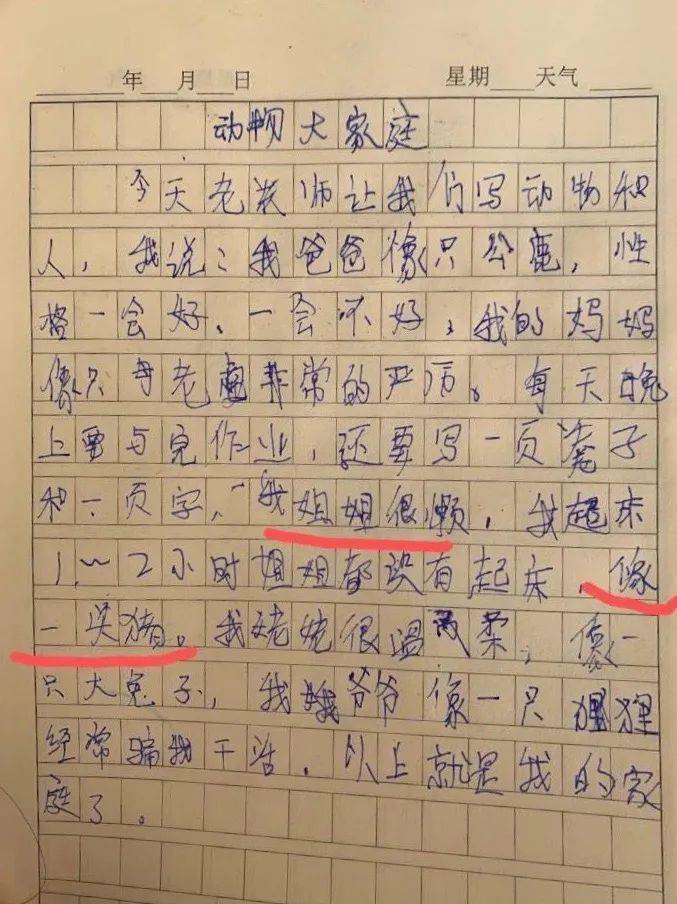 年 月 日 星期 天气
动物大家庭
今天老师让我们写动物和
人，我说：我爸爸像只公鹿，性
格一会好、一会不好，我的妈妈
像只母老虎非常的严厉。每天晚
上要写完作业，还要写一页凑子
和一页字，我姐姐很懒，我起床
1～2小时姐姐都没有起床，像
一头猪。我姥姥很温柔，像一
只大兔子，我爷爷像一只狸狸
经常骗我干活，以上就是我的家
庭了。